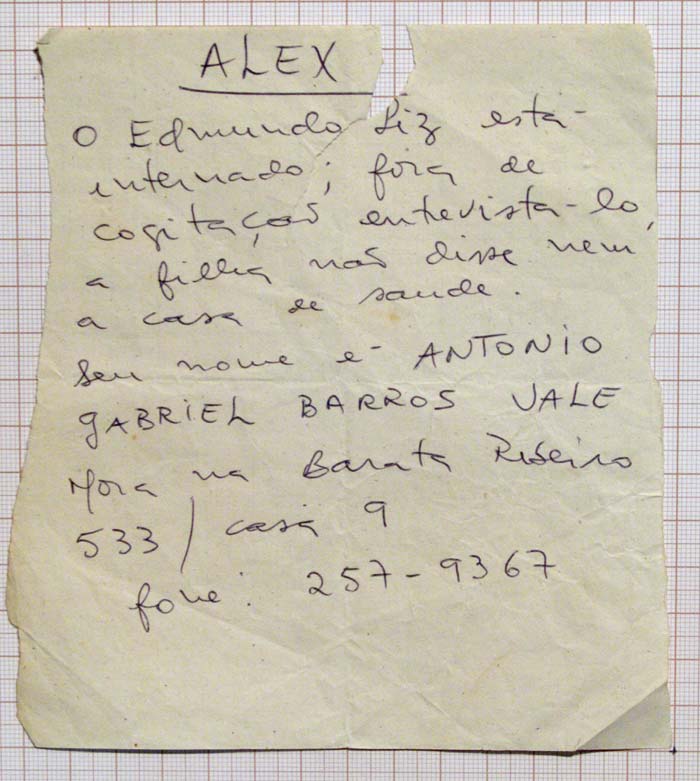 ALEX
O Edmundo Liz está
internado; fora de
cogitação entrevista-lo,
a filha não disse nem
a casa de saude.
Seu nome é ANTONIO
GABRIEL BARROS VALE
Mora na Barata Ribeiro
533 / casa 9
fone: 257-9367